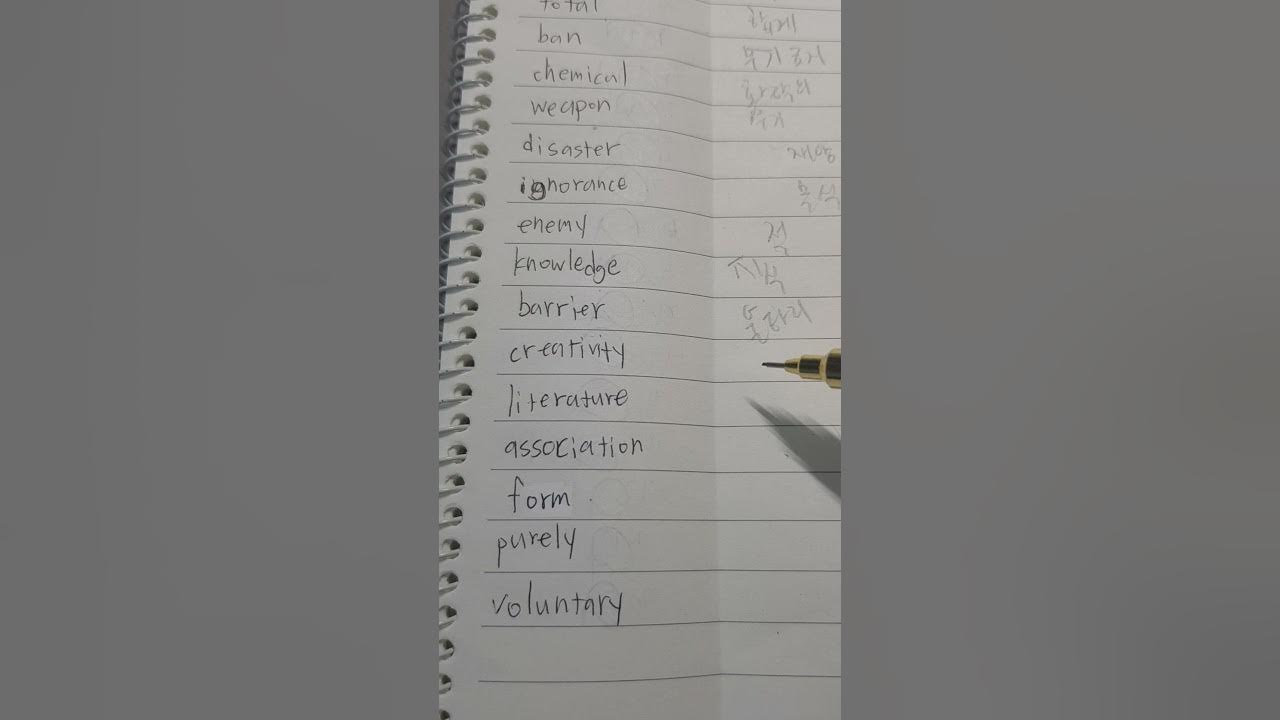 total
ban
chemical
weapon 무기
disaster 재앙
ignorance
enemy 적
knowledge 지식
barrier
creativity
literature
association
form
purely
voluntary